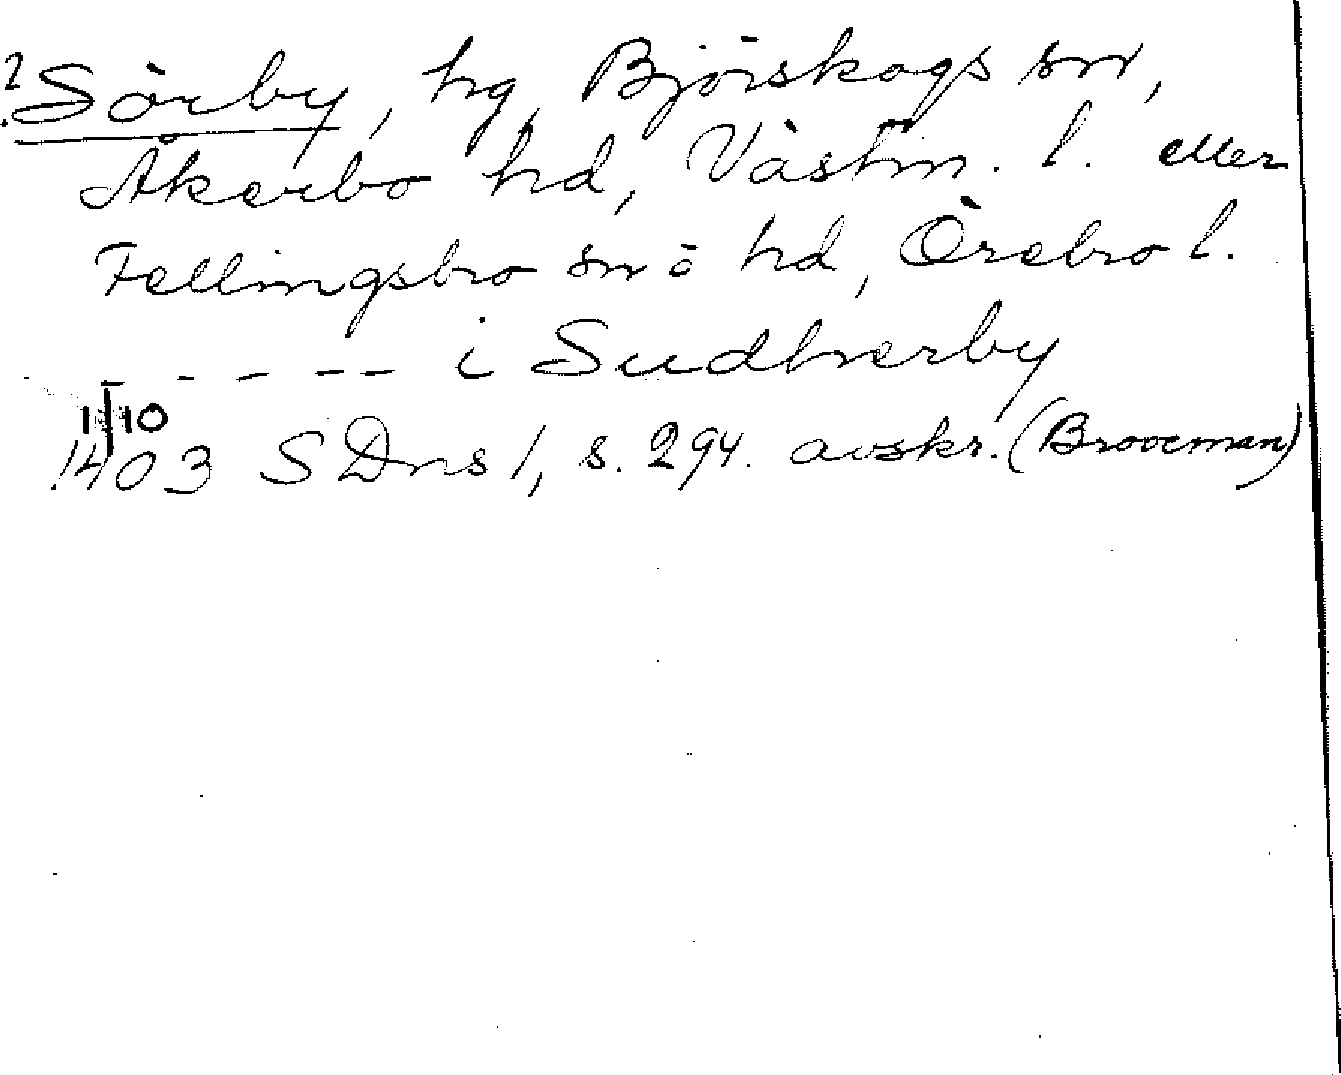 ? Sörby, hg, Björskogs sn,
Åkerbo hd, Västm. l. eller
Fellingsbro sn o hd, Örebro l.
- - - - - - i Sudhverby
1/10
1403 SDns 1, s. 294. avskr. (Brooceman)